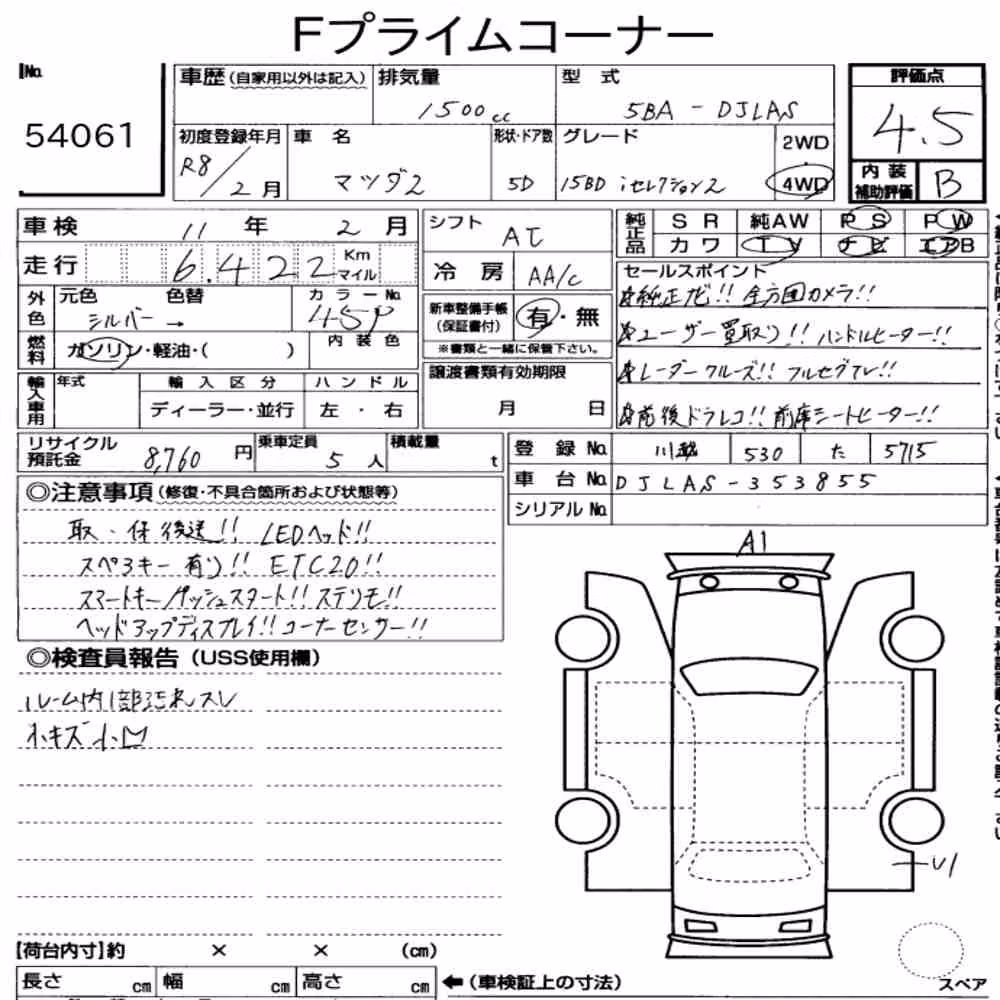 Fプライムコーナー
No.
54061
車歴 (自家用以外は記入)
排気量
1500cc
型式
5BA - DJLAS
評価点
4.5
初度登録年月
R8/2月
車名
マツダ2
形状・ドア数
5D
グレード
15BD iセレクション2
2WD
4WD
内装補助評価
B
車検 11年 2月
走行 6.422 Km マイル
シフト
AT
冷房
AA/c
純正品
SR 純AW PS PW
カワ TV ナビ エアB
外色
元色 色替
シルバー →
カラーNo.
45P
燃料
ガソリン・軽油・( )
内装色
新車整備手帳(保証書付)
有・無
※書類と一緒に保管下さい。
セールスポイント
☆純正ナビ!! 全方囲カメラ!!
☆ユーザー買取り!! ハンドルヒーター!!
☆レーダークルーズ!! フルセグTV!!
☆前後ドラレコ!! 前席シートヒーター!!
輸入車用
年式
輸入区分
ディーラー・並行
ハンドル
左・右
譲渡書類有効期限
月 日
リサイクル預託金
8,760円
乗車定員
5人
積載量
t
登録No. 川越 530 た 5715
車台No. DJLAS-353855
シリアルNo.
◎注意事項 (修復・不具合箇所および状態等)
取・保 後送!! LEDヘッド!!
スペアキー有り!! ETC2.0!!
スマートキー/プッシュスタート!! ステリモ!!
ヘッドアップディスプレイ!! コーナーセンサー!!
◎検査員報告 (USS使用欄)
ルーム内1部汚れスレ
小キズ小凹
A1
U1
【荷台内寸】約 × × (cm)
長さ cm 幅 cm 高さ cm
← (車検証上の寸法)
スペア